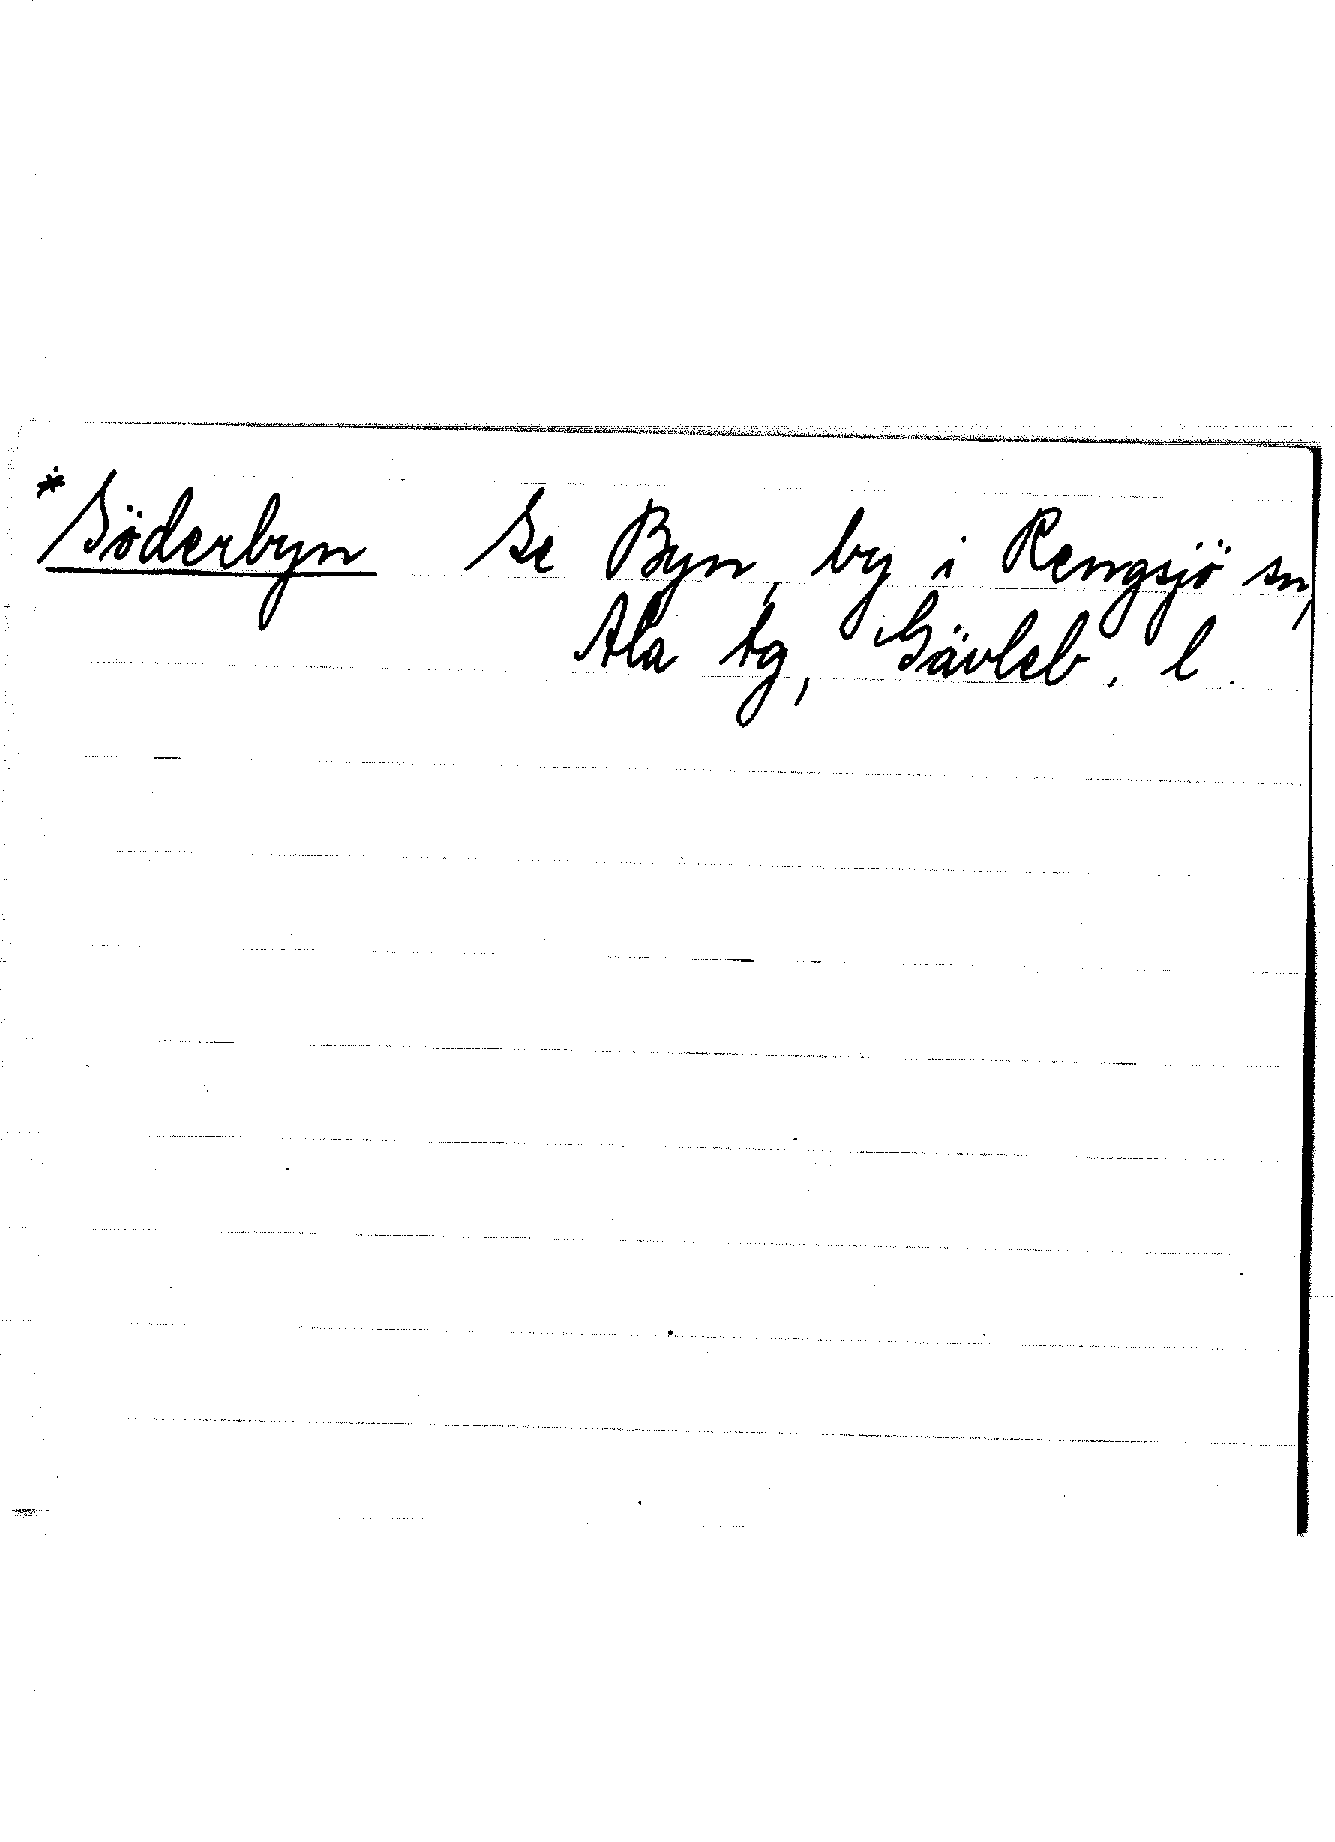 *Söderbyn Se Byn, by i Rengsjö sn,
Ala tg, Gävleb. l.